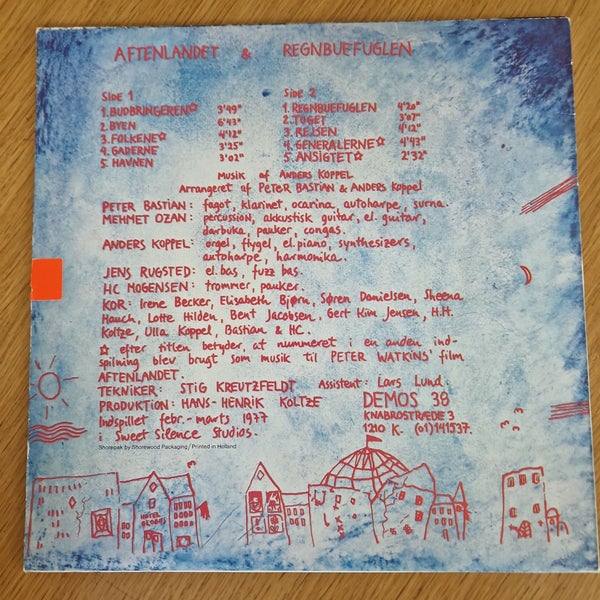 AFTENLANDET & REGNBUEFUGLEN
SIDE 1
1. BUDBRINGEREN☆ 3'49"
2. BYEN 6'43"
3. FOLKENE☆ 4'12"
4. GADERNE 3'25"
5. HAVNEN 3'02"
SIDE 2
1. REGNBUEFUGLEN 4'20"
2. TOGET 3'07"
3. REJSEN 4'12"
4. GENERALERNE☆ 4'43"
5. ANSIGTET☆ 2'32"
MUSIK af ANDERS KOPPEL
Arrangeret af PETER BASTIAN & ANDERS Koppel
PETER BASTIAN: fagot, klarinet, ocarina, autoharpe, surna.
MEHMET OZAN: percussion, akkustisk guitar, el. guitar,
darbuka, pauker, congas.
ANDERS KOPPEL: orgel, flygel, el. piano, synthesizers,
autoharpe, harmonika.
JENS RUGSTED: el. bas, fuzz bas.
HC MOGENSEN: trommer, pauker.
KOR: Irene Becker, Elisabeth Bjørn, Søren Danielsen, Sheena
Hauch, Lotte Hilden, Bent Jacobsen, Gert Kim Jensen, H.H.
Koltze, Ulla Koppel, Bastian & HC.
☆ efter titlen betyder, at nummeret i en anden ind-
spilning blev brugt som musik til PETER WATKINS' film
AFTENLANDET.
TEKNIKER: STIG KREUTZFELDT Assistent: Lars Lund.
PRODUKTION: HANS-HENRIK KOLTZE
Indspillet febr.-marts 1977
i Sweet Silence Studios.
DEMOS 38
KNABROSTRÆDE 3
1210 K. (01)141537.
Shorepak by Shorewood Packaging/Printed in Holland
HOTEL